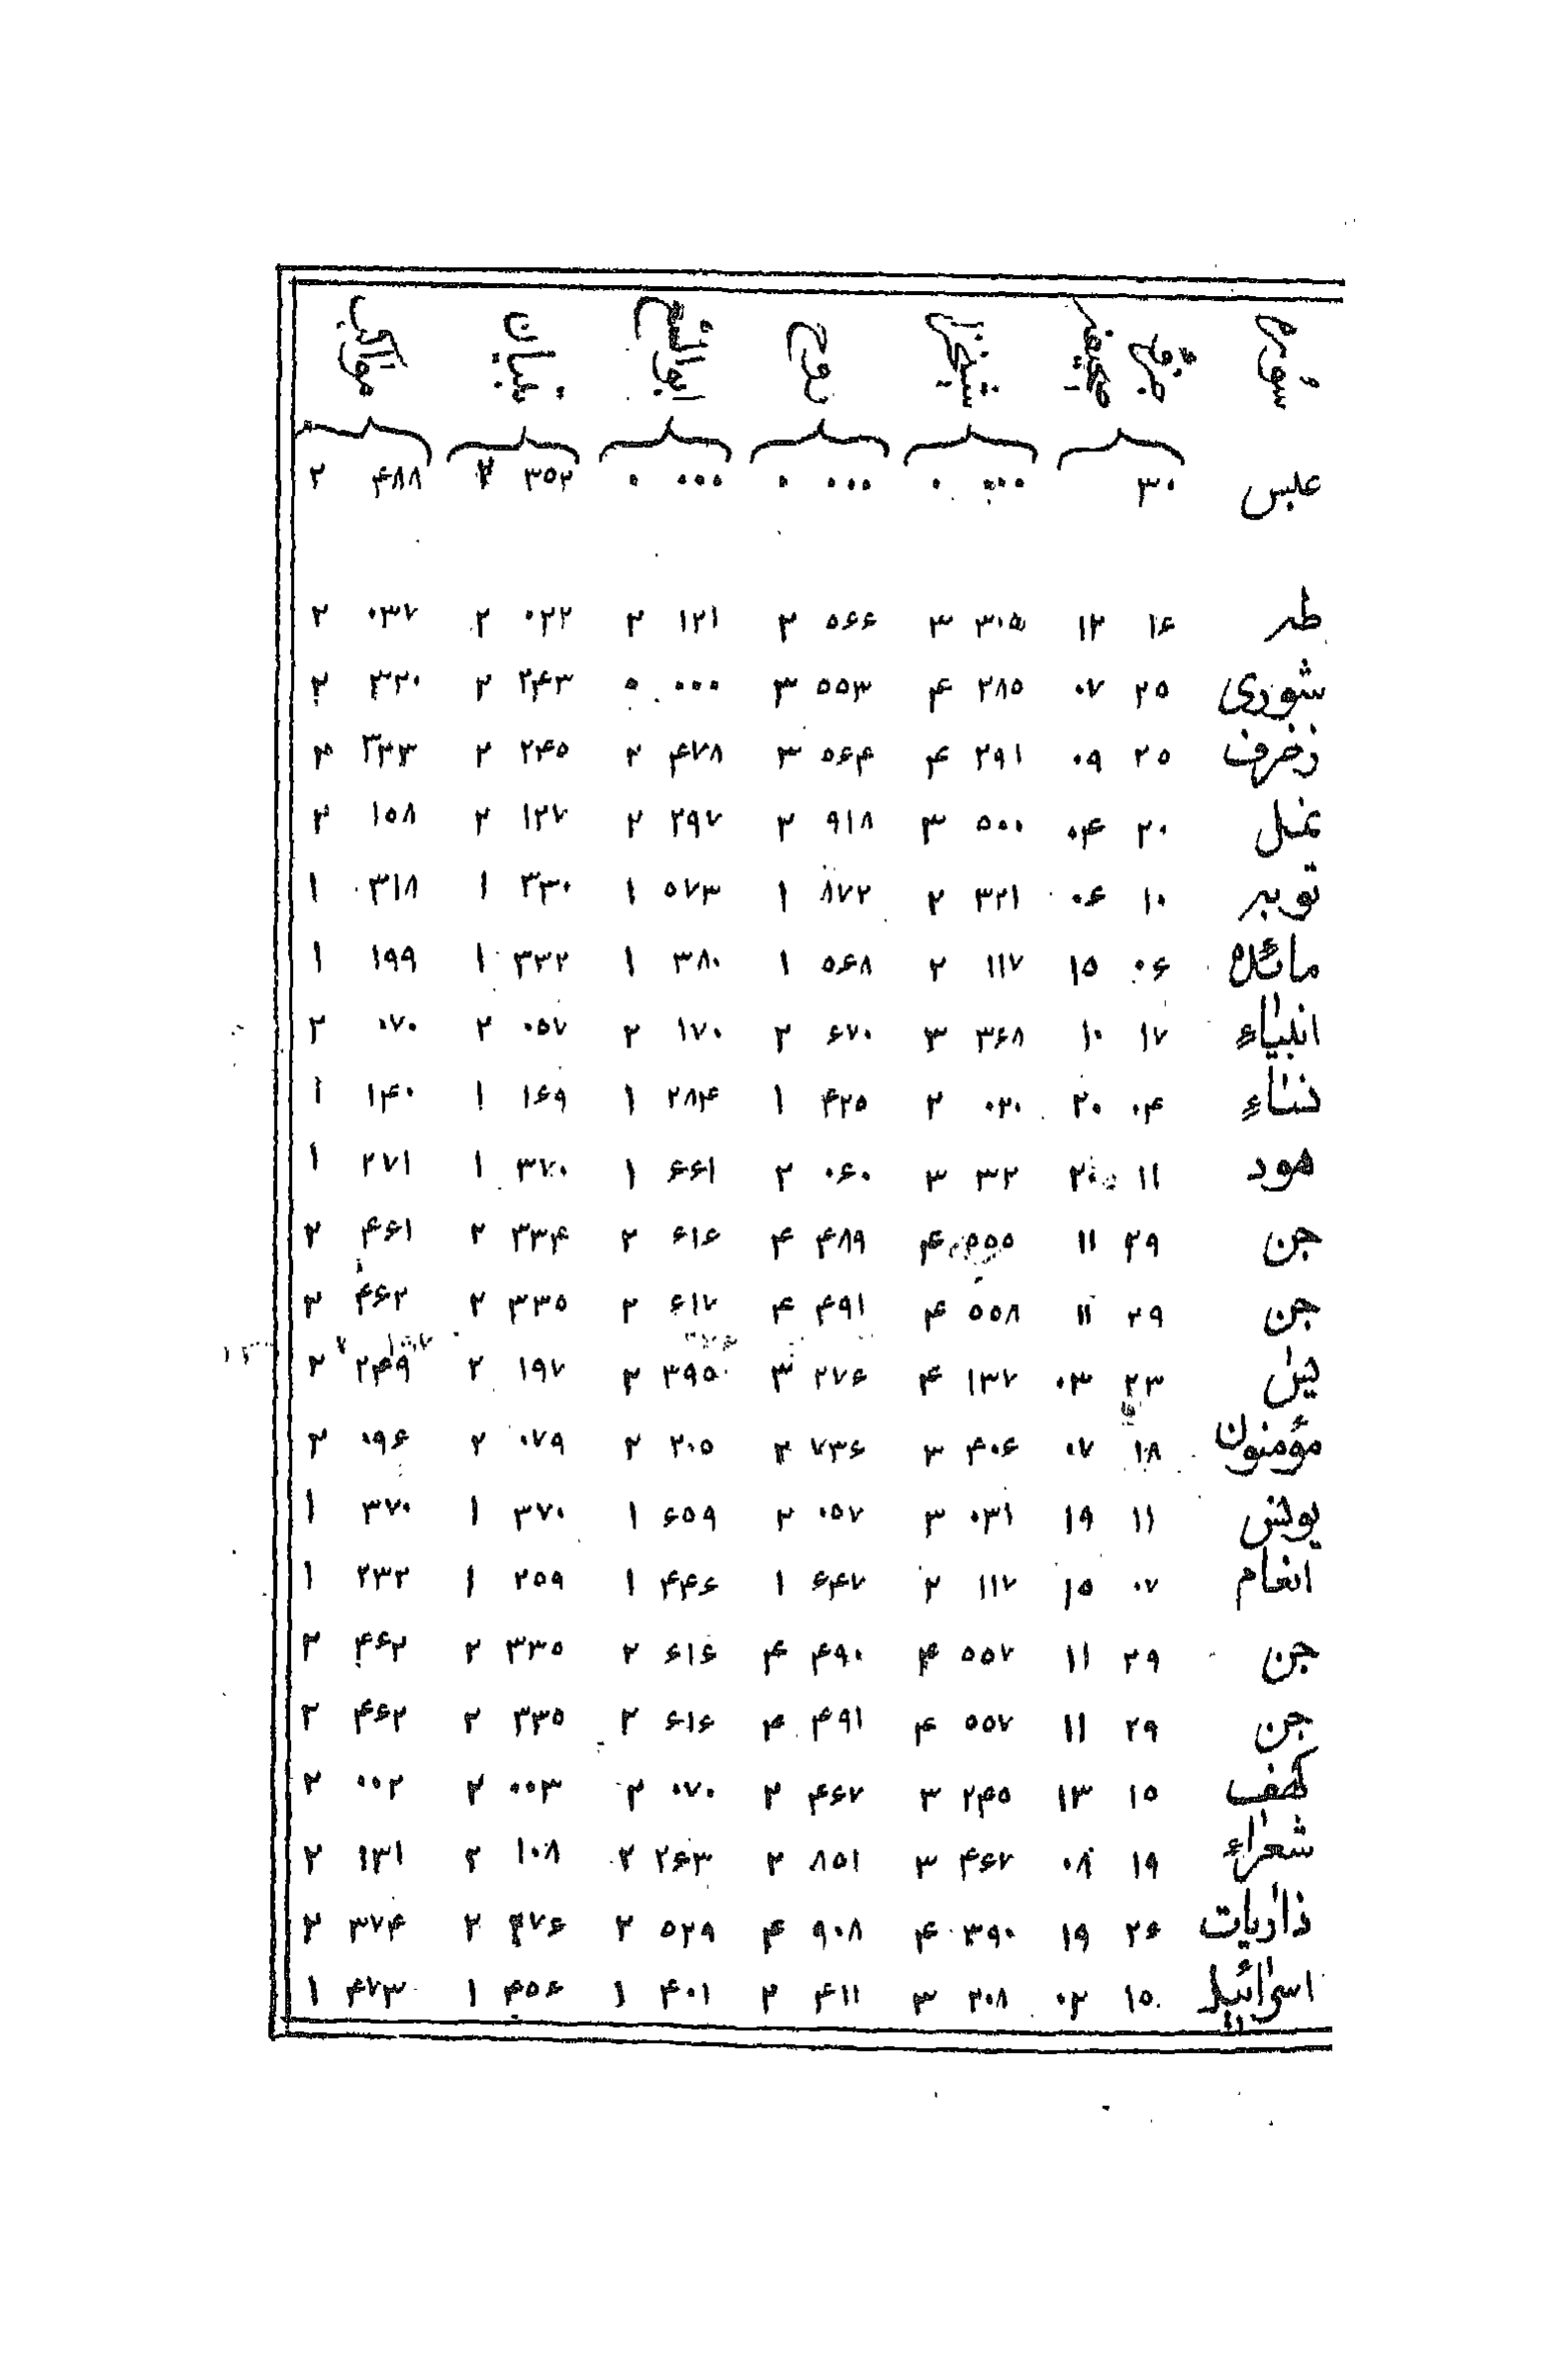 سوره جزو صحیفه شیخ روح ابوالفتح تبیان مواکب
عبس ۳۰ ۰۰۰ ۰ ۰۰۰ ۰ ۰۰۰ ۰ ۳۵۲ ۲ ۴۸۸ ۲
طه ۱۶ ۱۲ ۳۰۵ ۳ ۵۶۶ ۲ ۱۲۱ ۲ ۰۲۲ ۲ ۰۳۷ ۲
شوری ۲۵ ۰۷ ۲۸۵ ۴ ۵۵۳ ۳ ۰۰۰ ۰ ۲۴۳ ۲ ۳۲۰ ۲
زخرف ۲۵ ۰۹ ۲۹۱ ۴ ۵۶۴ ۳ ۴۷۸ ۲ ۲۴۵ ۲ ۳۲۳ ۲
نمل ۲۰ ۰۴ ۵۰۰ ۳ ۹۱۸ ۲ ۲۹۷ ۲ ۱۲۷ ۲ ۱۵۸ ۲
توبه ۱۰ ۰۶ ۳۲۱ ۲ ۸۷۲ ۱ ۵۷۳ ۱ ۳۳۰ ۱ ۳۱۸ ۱
مائده ۰۶ ۱۵ ۱۱۷ ۲ ۵۶۸ ۱ ۳۸۰ ۱ ۲۲۲ ۱ ۱۹۹ ۱
انبیاء ۱۷ ۱۰ ۳۶۸ ۳ ۶۷۰ ۲ ۱۷۰ ۲ ۰۵۷ ۲ ۰۷۰ ۲
نساء ۰۴ ۲۰ ۰۲۰ ۲ ۴۲۵ ۱ ۲۸۴ ۱ ۱۶۹ ۱ ۱۴۰ ۱
هود ۱۱ ۲۰ ۳۲ ۳ ۰۶۰ ۲ ۶۶۱ ۱ ۳۷۰ ۱ ۲۷۱ ۱
جن ۲۹ ۱۱ ۵۵۵ ۴ ۴۸۹ ۴ ۶۱۶ ۲ ۳۳۴ ۲ ۴۶۱ ۲
جن ۲۹ ۱۱ ۵۵۸ ۴ ۴۹۱ ۴ ۶۱۷ ۲ ۳۳۵ ۲ ۴۶۲ ۲
یس ۲۳ ۰۳ ۱۳۷ ۴ ۲۷۶ ۳ ۳۹۵ ۲ ۱۹۷ ۲ ۲۴۹ ۲
مؤمنون ۱۸ ۰۷ ۴۰۶ ۳ ۷۳۶ ۲ ۲۰۵ ۲ ۰۷۹ ۲ ۰۹۶ ۲
یونس ۱۱ ۱۹ ۰۳۱ ۳ ۰۵۷ ۲ ۶۵۹ ۱ ۳۷۰ ۱ ۳۷۰ ۱
انعام ۰۷ ۱۵ ۱۱۷ ۲ ۶۴۷ ۱ ۴۴۶ ۱ ۲۵۹ ۱ ۲۳۲ ۱
جن ۲۹ ۱۱ ۵۵۷ ۴ ۴۹۰ ۴ ۶۱۶ ۲ ۳۳۵ ۲ ۴۶۲ ۲
جن ۲۹ ۱۱ ۵۵۷ ۴ ۴۹۱ ۴ ۶۱۶ ۲ ۳۳۵ ۲ ۴۶۲ ۲
کهف ۱۵ ۱۳ ۲۴۵ ۳ ۴۶۷ ۲ ۰۷۰ ۲ ۰۰۳ ۲ ۰۰۲ ۲
شعراء ۱۹ ۰۸ ۴۶۷ ۳ ۸۵۱ ۲ ۲۶۳ ۲ ۱۰۸ ۲ ۱۳۱ ۲
ذاریات ۲۶ ۱۹ ۳۹۰ ۴ ۹۰۸ ۴ ۵۲۹ ۲ ۲۷۶ ۲ ۳۷۴ ۲
اسرائیل ۱۵ ۰۲ ۲۰۸ ۳ ۴۱۱ ۲ ۴۰۱ ۱ ۴۵۶ ۱ ۴۷۳ ۱